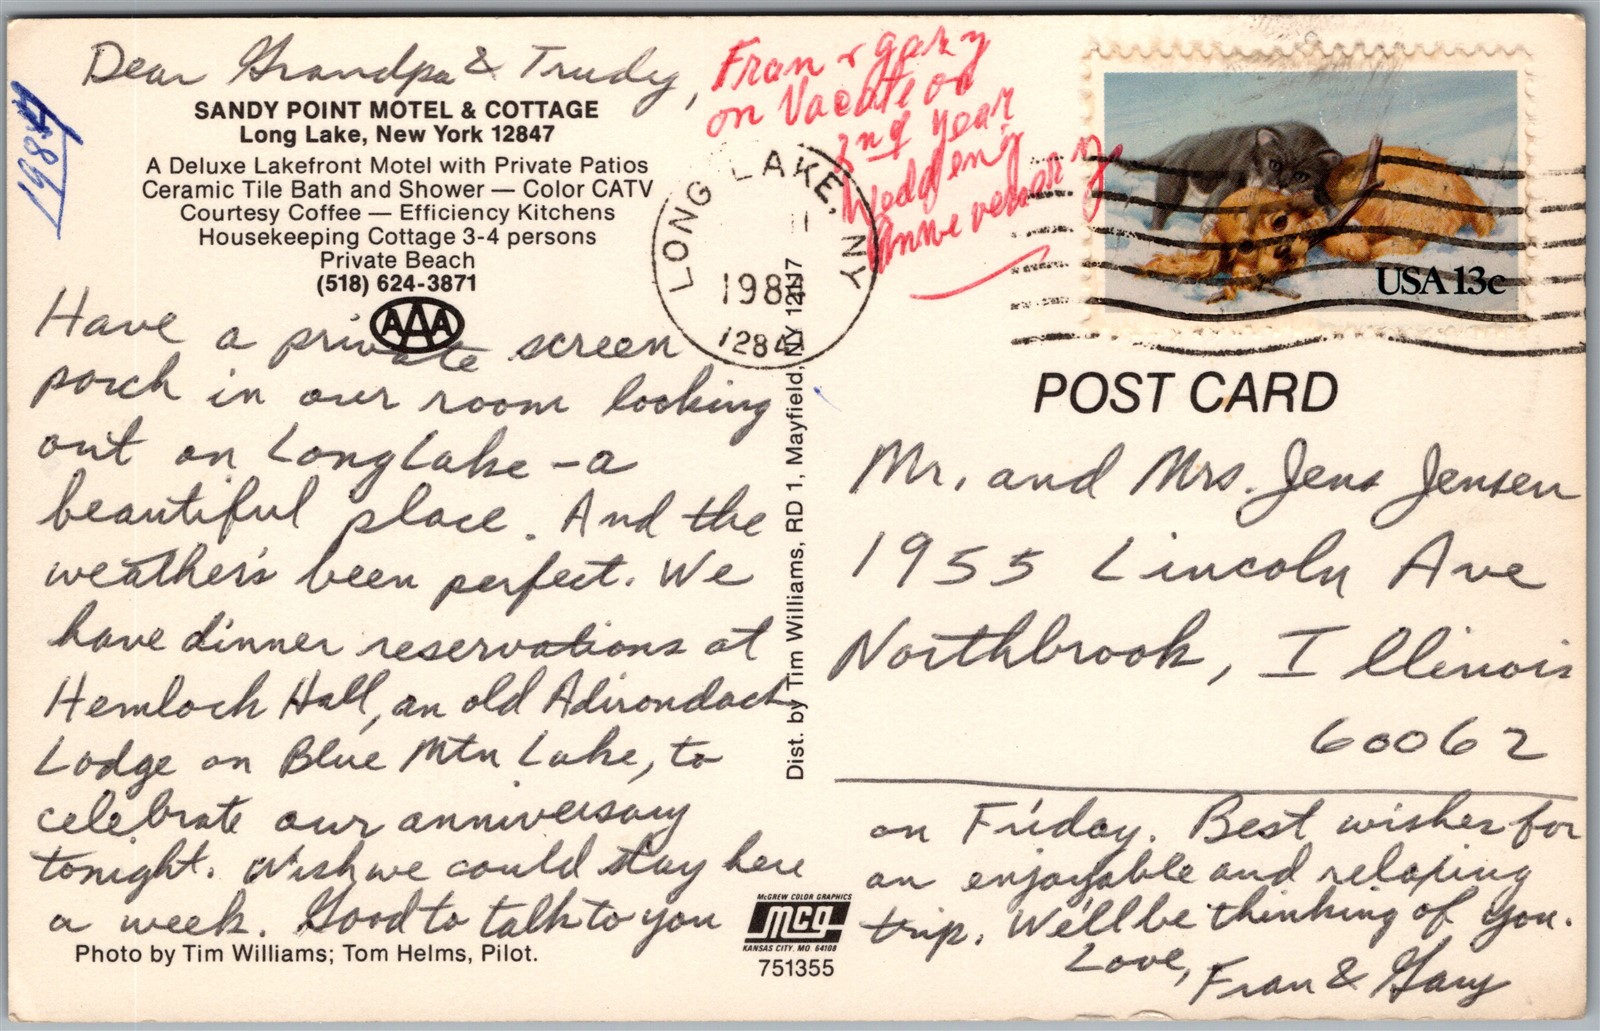 Dear Grandpa & Trudy,
SANDY POINT MOTEL & COTTAGE
Long Lake, New York 12847
A Deluxe Lakefront Motel with Private Patios
Ceramic Tile Bath and Shower — Color CATV
Courtesy Coffee — Efficiency Kitchens
Housekeeping Cottage 3-4 persons
Private Beach
(518) 624-3871
AAA
1984
Have a private screen
porch in our room looking
out on Long Lake – a
beautiful place. And the
weather's been perfect. We
have dinner reservations at
Hemlock Hall, an old Adirondack
Lodge on Blue Mtn Lake, to
celebrate our anniversary
tonight. Wish we could stay here
a week. Good to talk to you
Photo by Tim Williams; Tom Helms, Pilot.
Fran + gary
on
2nd year
LONG LAKE, NY
11
198
1284
Dist. by Tim Williams, RD 1, Mayfield, NY 12117
McGREW COLOR GRAPHICS
mcg
KANSAS CITY, MO 64108
751355
USA 13c
POST CARD
Mr. and Mrs. Jens Jensen
1955 Lincoln Ave
Northbrook, Illinois
60062
on Friday. Best wishes for
an enjoyable and relaxing
trip. We'll be thinking of you.
Love,
Fran & Gary